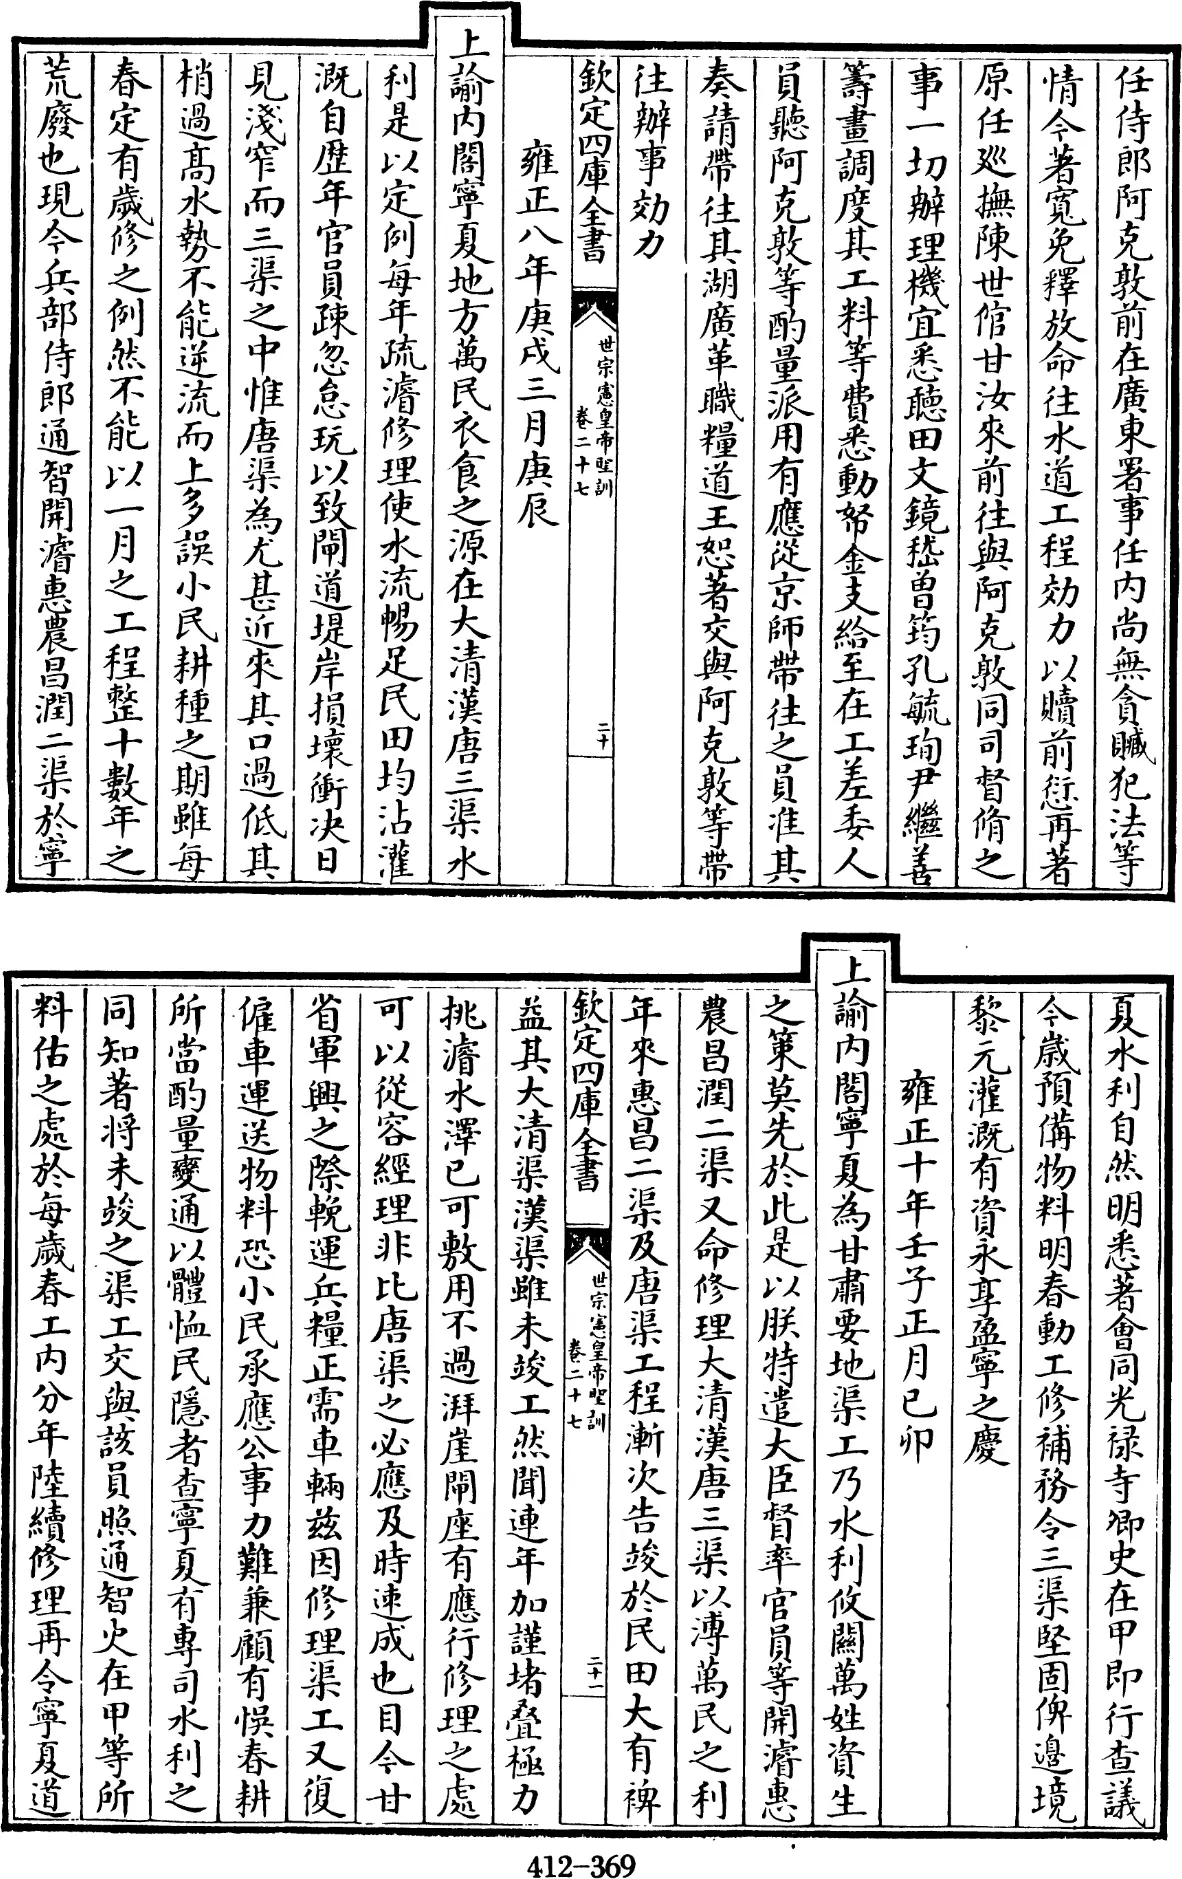 任侍郎阿克敦前在廣東署事任內尚無貪贓犯法等
情今著寛免釋放命往水道工程効力以贖前愆再著
原任廵撫陳世倌甘汝來前往與阿克敦同司督脩之
事一切辦理機宜悉聽田文鏡嵇曽筠孔毓珣尹繼善
籌畫調度其工料等費悉動帑金支給至在工差委人
員聽阿克敦等酌量派用有應從京師帶往之員准其
奏請帶往其湖廣革職糧道王恕著交與阿克敦等帶
往辦事効力
欽定四庫全書
世宗憲皇帝聖訓
卷二十七
二十
雍正八年庚戌三月庚辰
上諭內閣寧夏地方萬民衣食之源在大清漢唐三渠水
利是以定例每年疏濬修理使水流暢足民田均沾灌
溉自歴年官員疎忽怠玩以致閘道堤岸損壞衝决日
見淺窄而三渠之中惟唐渠為尤甚近來其口過低其
梢過高水勢不能逆流而上多誤小民耕種之期雖每
春定有歲修之例然不能以一月之工程整十數年之
荒廢也現今兵部侍郎通智開濬惠農昌潤二渠於寧
夏水利自然明悉著會同光禄寺卿史在甲即行查議
今歲預備物料明春動工修補務令三渠堅固俾邊境
黎元灌溉有資永享盈寧之慶
雍正十年壬子正月己卯
上諭內閣寧夏為甘肅要地渠工乃水利攸關萬姓資生
之策莫先於此是以朕特遣大臣督率官員等開濬惠
農昌潤二渠又命修理大清漢唐三渠以溥萬民之利
年來惠昌二渠及唐渠工程漸次告竣於民田大有裨
欽定四庫全書
世宗憲皇帝聖訓
卷二十七
二十一
益其大清渠漢渠雖未竣工然聞連年加謹堵叠極力
挑濬水澤已可敷用不過湃崖閘座有應行修理之處
可以從容經理非比唐渠之必應及時速成也目今甘
省軍興之際輓運兵糧正需車輛茲因修理渠工又復
僱車運送物料恐小民承應公事力難兼顧有悞春耕
所當酌量變通以體恤民隱者查寧夏有專司水利之
同知著將未竣之渠工交與該員照通智史在甲等所
料估之處於每歲春工內分年陸續修理再令寧夏道
412-369